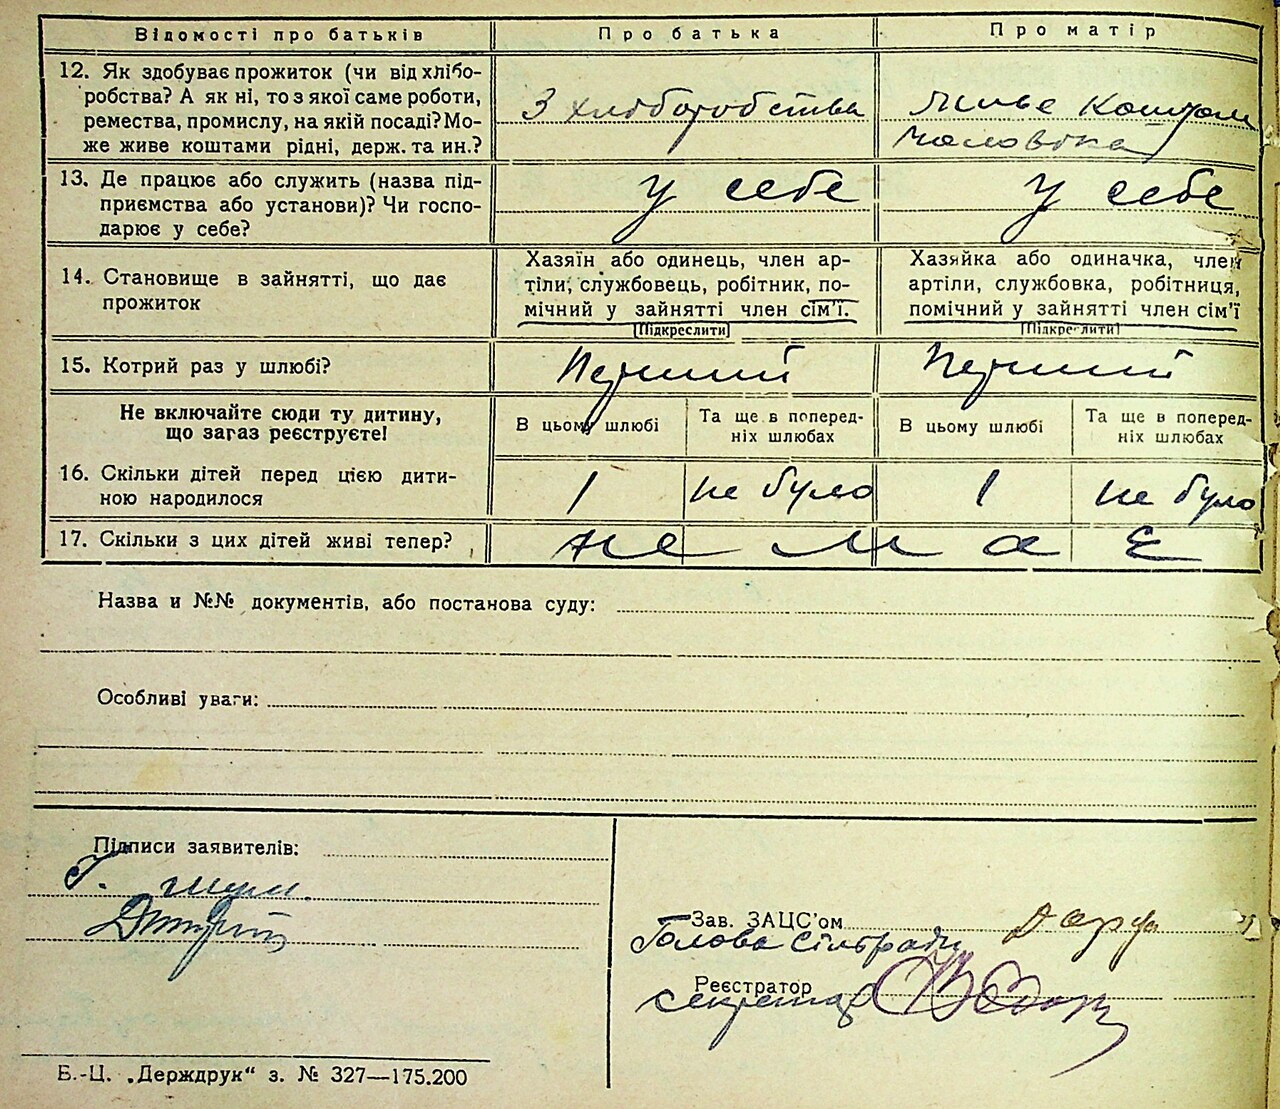 Відомості про батьків Про батька Про матір
12. Як здобуває прожиток (чи від хлібо-
робства? А як ні, то з якої саме роботи,
ремества, промислу, на якій посаді? Мо-
же живе коштами рідні, держ. та ин.?
З хліборобства
живе коштом
чоловіка
13. Де працює або служить (назва під-
приємства або установи)? Чи госпо-
дарює у себе?
у себе
у себе
14. Становище в зайнятті, що дає
прожиток
Хазяїн або одинець, член ар-
тіли, службовець, робітник, по-
мічний у зайнятті член сім'ї.
(Підкреслити)
Хазяйка або одиначка, член
артіли, службовка, робітниця,
помічний у зайнятті член сім'ї
(Підкреслити)
15. Котрий раз у шлюбі?
Перший
Перший
Не включайте сюди ту дитину,
що загаз реєструєте!
В цьому шлюбі
Та ще в поперед-
ніх шлюбах
В цьому шлюбі
Та ще в поперед-
ніх шлюбах
16. Скільки дітей перед цією дити-
ною народилося
1 не було 1 не було
17. Скільки з цих дітей живі тепер?
не м а є
Назва и №№ документів, або постанова суду:
Особливі уваги:
Підписи заявителів:
Г.
Дмитрій
Зав. ЗАЦС'ом
Голова сільради
Реєстратор
секретар
Б.-Ц. „Держдрук" з. № 327—175.200